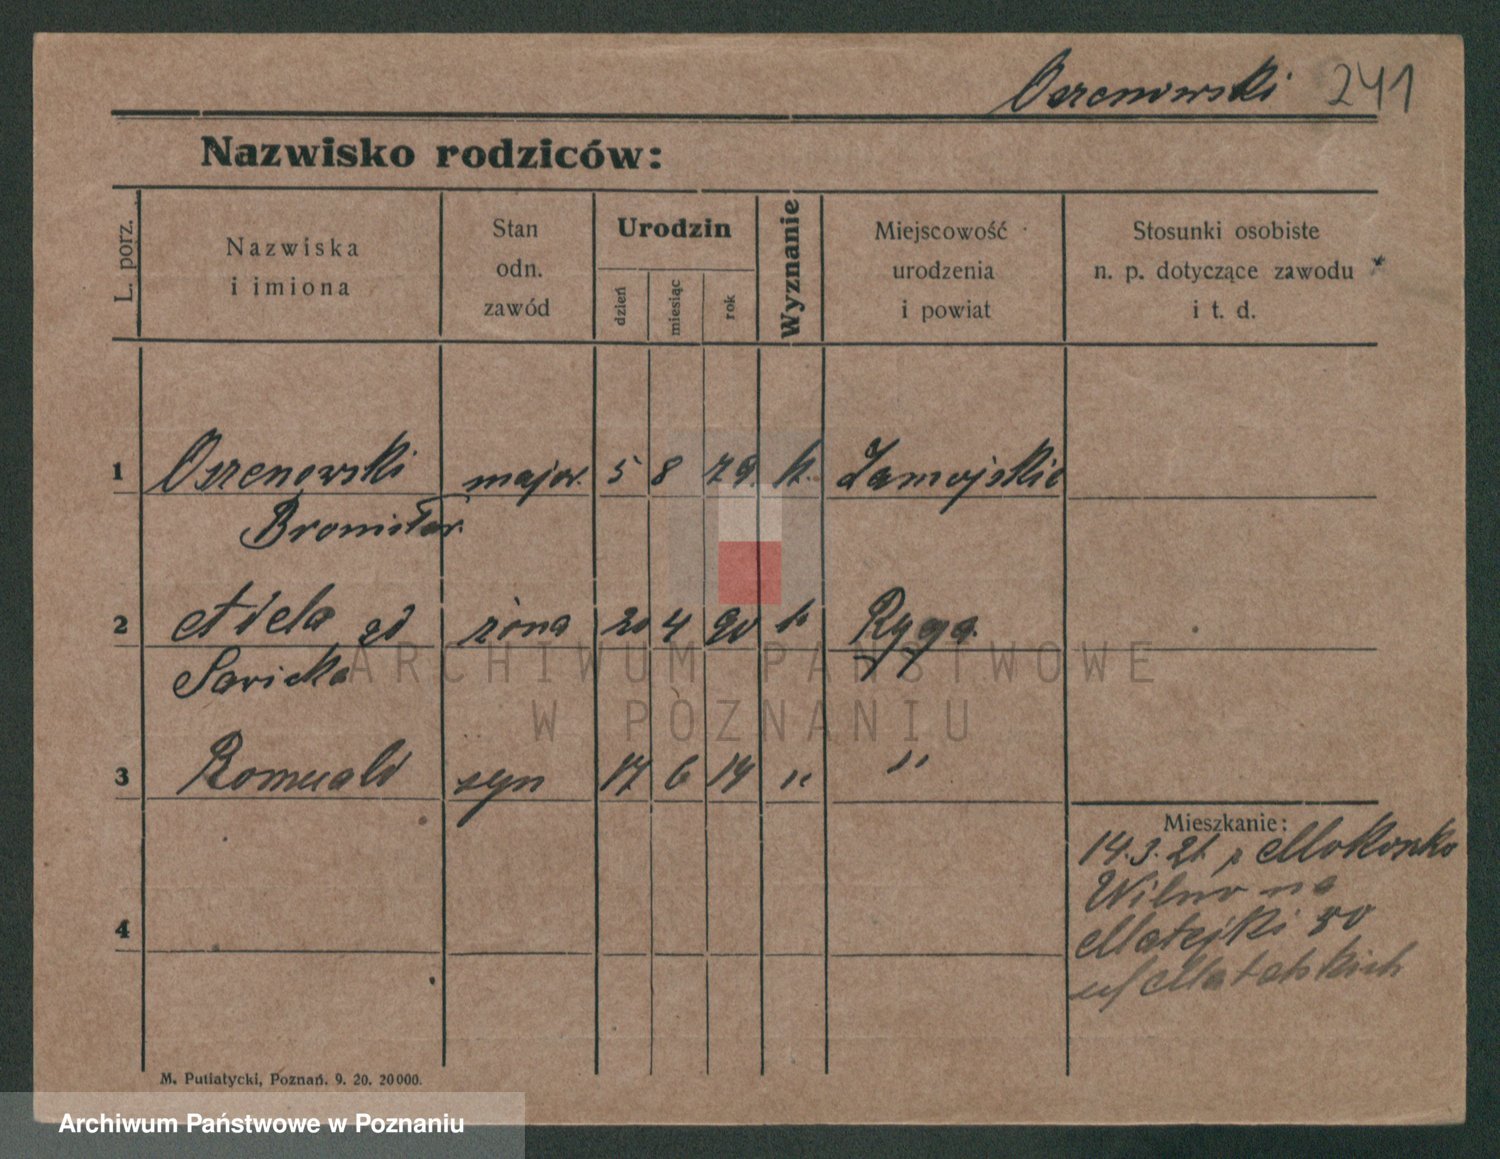 Oszenowski 241
Nazwisko rodziców:
L. porz.
Nazwiska
i imiona
Stan
odn.
zawód
Urodzin
dzień
miesiąc
rok
Wyznanie
Miejscowość
urodzenia
i powiat
Stosunki osobiste
n. p. dotyczące zawodu
i t. d.
1 major. 5 8 79. k. Zamojskie
Bronisław.
2 Adela żona 20 4 90 k Ryga.
3 Romuald syn 17 6 14 " "
4
Mieszkanie:
14.3.21.
Wilno na
Matejki
M. Putiatycki, Poznań. 9. 20. 20000.
ARCHIWUM PAŃSTWOWE
W POZNANIU
Archiwum Państwowe w Poznaniu